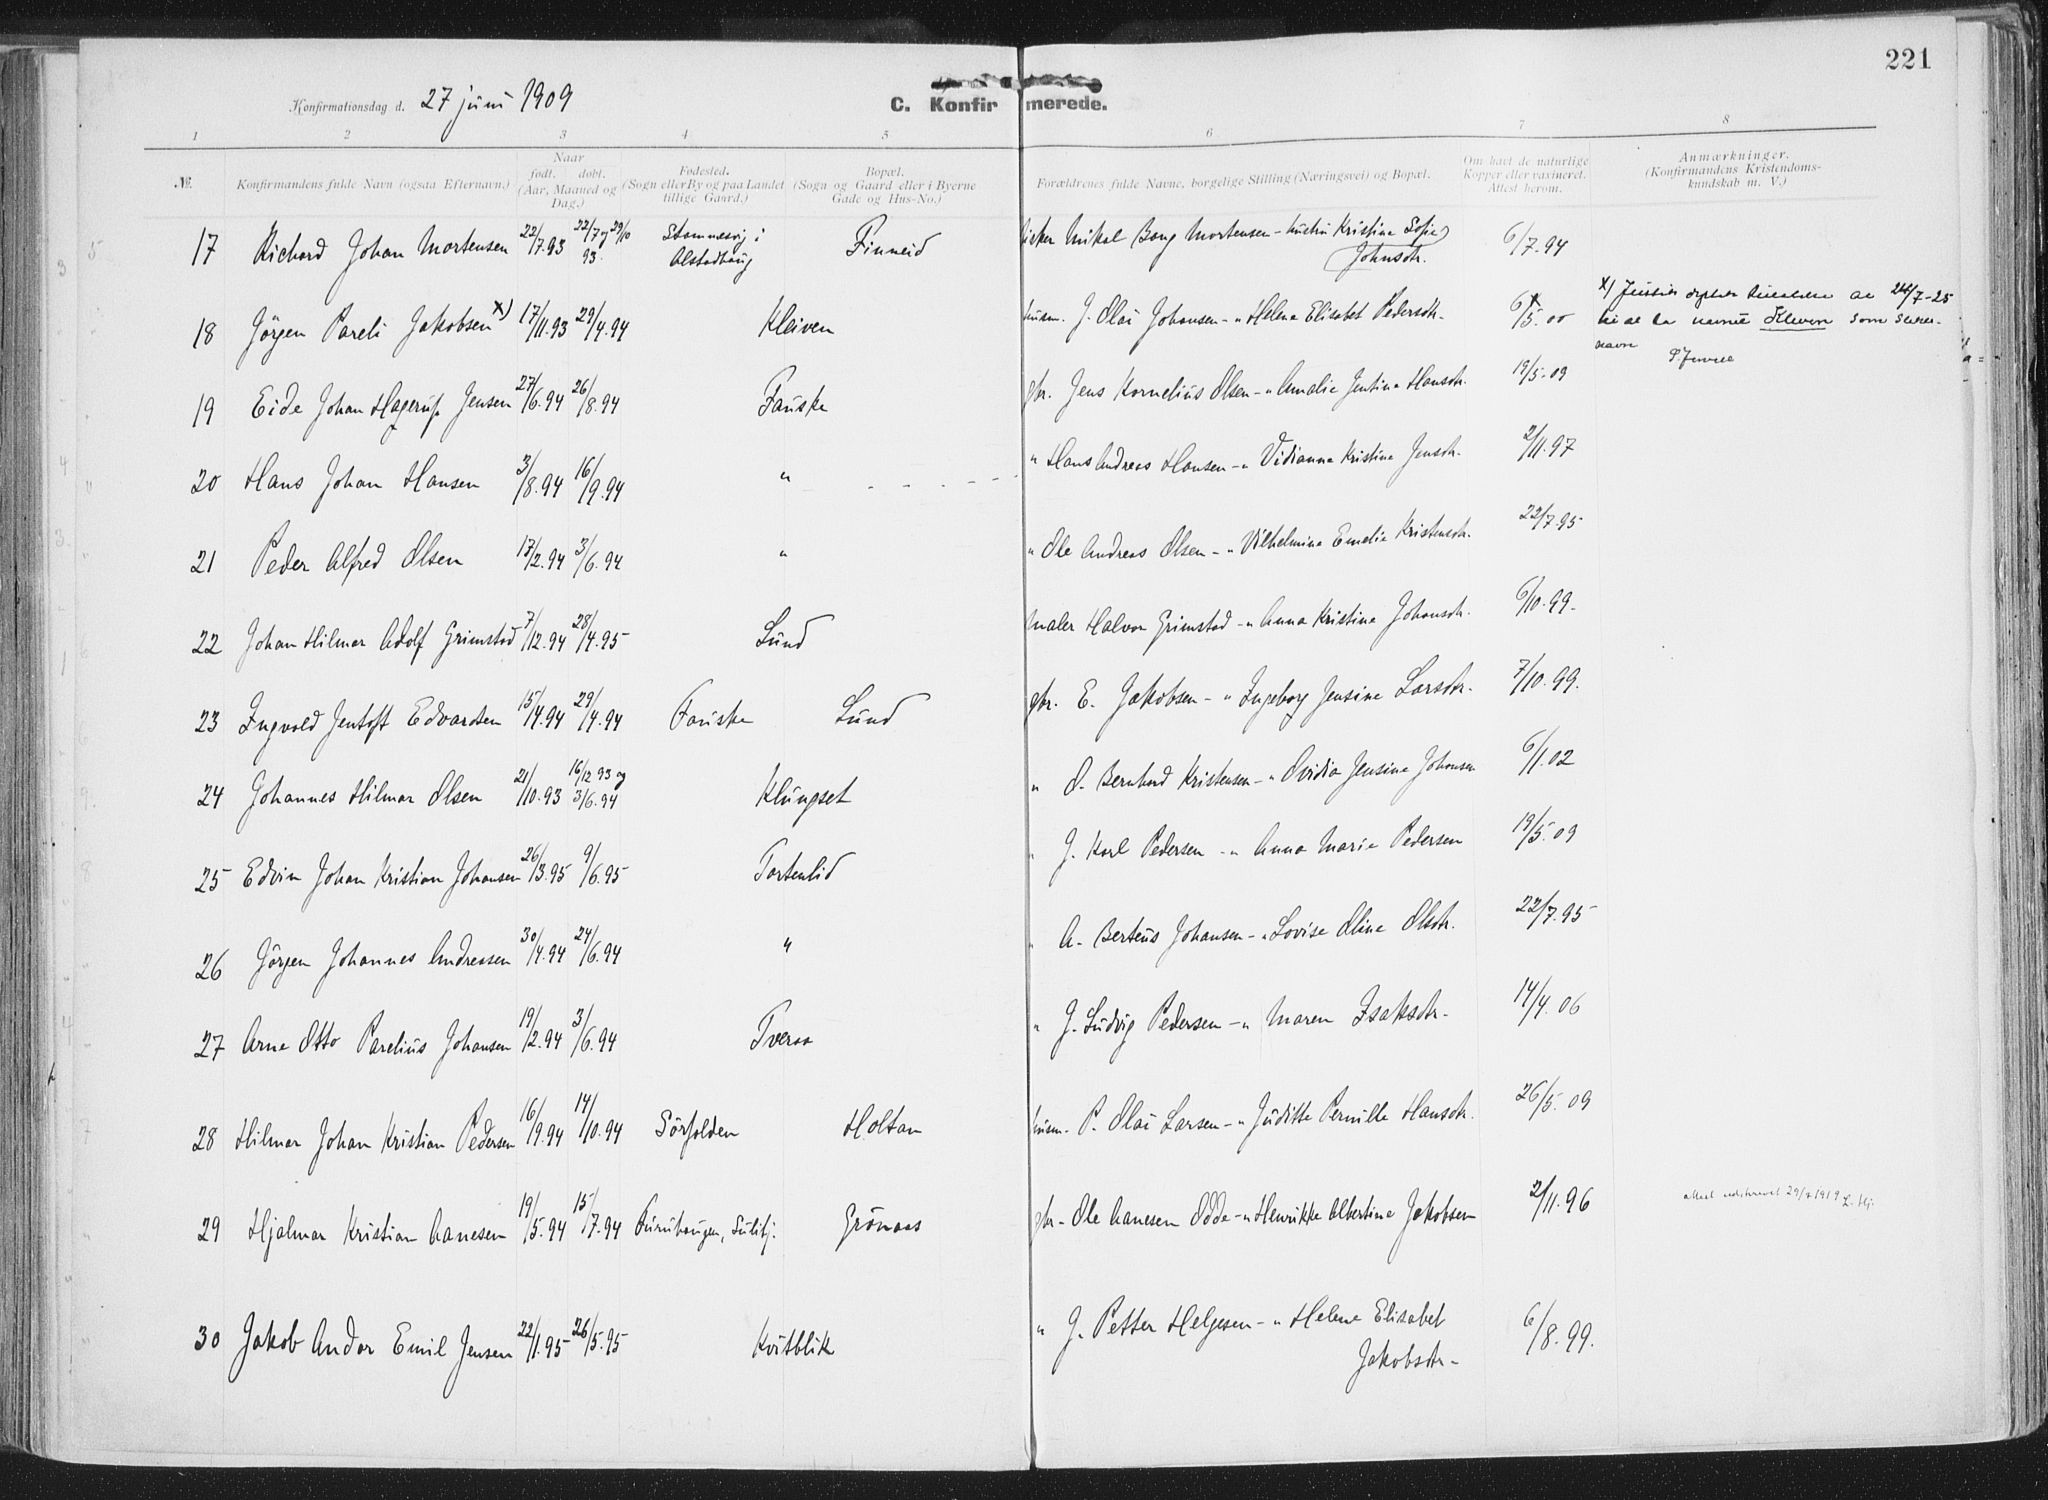 221
Konfirmationsdag d. 27 juni 1909
C. Konfirmerede.
1 2 3 4 5 6 7 8
№. Konfirmandens fulde Navn (ogsaa Efternavn.) Naar født. døbt. (Aar, Maaned og Dag.) Fødested. (Sogn eller By og paa Landet tillige Gaard.) Bopæl. (Sogn og Gaard eller i Byerne Gade og Hus-No.) Forældrenes fulde Navne, borgelige Stilling (Næringsvei) og Bopæl. Om havt de naturlige Kopper eller vaxineret. Attest herom. Anmærkninger. (Konfirmandens Kristendoms-kundskab m. V.)
17 Richard Johan Mortensen 22/7.93 22/7 og 29/10 93. Stamnesvig i Alstadhaug Finneid fisker Mikal Bang Mortensen - hustru Kristine Sofie Johnsdtr. 6/7.94
18 Jörgen Pareli Jakobsen x) 17/11.93 29/4.94 Kleiven husm. J. Olai Johansen - " Helene Elisabet Pedersdtr. 6/5.00 x) 24/7-25 navnet Kleven som
navn
19 Eide Johan Hagerup Jensen 27/6.94 26/8.94 Fauske gbr. Jens Kornelius Olsen - " Amalie Jentine Hansdtr. 19/5.09
20 Hans Johan Hansen 3/8.94 16/9.94 " " Hans Andreas Hansen - " Vidianna Kristine Jensdtr. 2/11.97
21 Peder Alfred Olsen 17/2.94 3/6.94 " " Ole Andreas Olsen - " Vilhelmine Emelie Kristensdtr. 22/7.95
22 Johan Hilmar Adolf Grimstad 7/12.94 28/4.95 Lund maler Halvor Grimstad - " Anna Kristine Johansdtr. 6/10.99.
23 Ingvald Jentoft Edvardsen 15/4.94 29/4.94 Fauske Lund gbr. E. Jakobsen - " Ingeborg Jensine Larsdtr. 7/10.99.
24 Johannes Hilmar Olsen 21/10.93 16/12 93 og 3/6.94 Klungset " O. Bernhard Kristensen - " Ovidia Jensine Johansen 6/1.02
25 Edvin Johan Kristian Johansen 26/3.95 9/6.95 Tortenlid " J. Karl Pedersen - " Anna Marie Pedersen 19/5.09
26 Jörgen Johannes Andreasen 30/4.94 24/6.94 " " A. Berteus Johansen - " Lovise Oline Olsdtr. 22/7.95
27 Arne Otto Parelius Johansen 19/2.94 3/6.94 Tveraa " J. Ludvig Pedersen - " Maren Isaksdtr. 14/4.06
28 Hilmar Johan Kristian Pedersen 16/9.94 14/10.94 Sörfolden Holtan husm. P. Olai Larsen - " Juditte Pernille Hansdtr. 26/5.09
29 Hjalmar Kristian Aanesen 19/5.94 15/7.94 Furuhaugen, Sulitj. Grönaas gbr. Ole Aanesen Odde - " Henrikke Albertine Jakobsen 2/11.96 attest udskrevet 29/7 1919 L. Hj.
30 Jakob Andor Emil Jensen 22/1.95 26/5.95 Kvitblik " J. Petter Helgesen - " Helene Elisabet Jakobsdtr. 6/8.99.